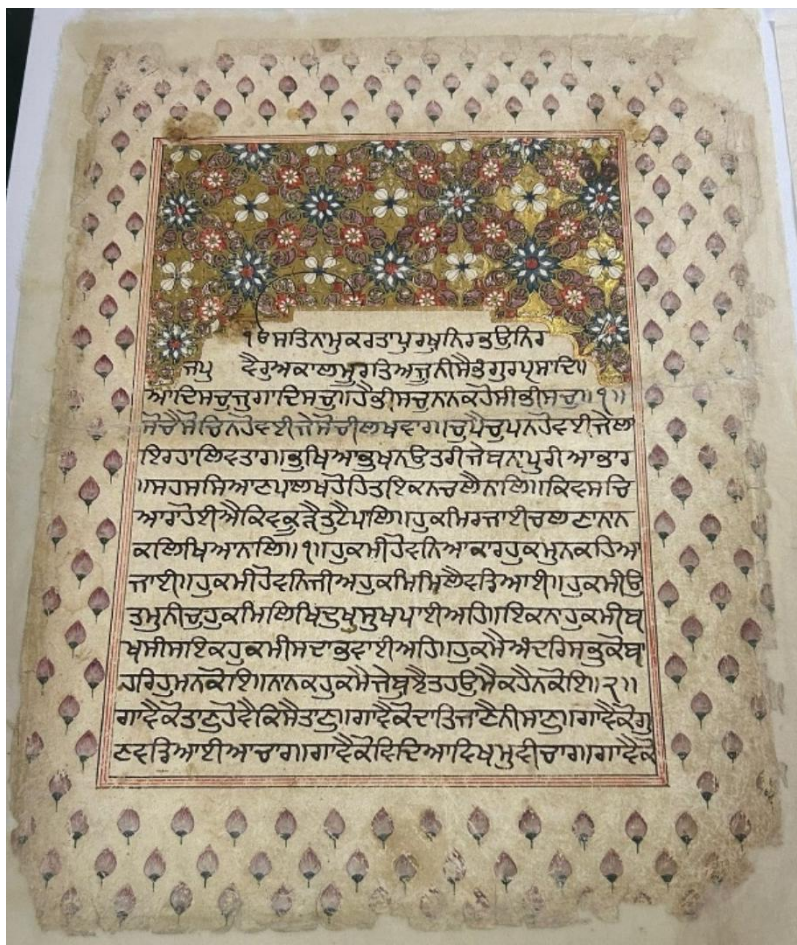 ੧ੴ ਸਤਿਨਾਮੁਕਰਤਾਪੁਰਖੁਨਿਰਭਉਨਿਰ
ਜਪੁ ਵੈਰੁਅਕਾਲਮੂਰਤਿਅਜੂਨੀਸੈਭੰਗੁਰਪ੍ਰਸਾਦਿ॥
ਆਦਿਸਚੁਜੁਗਾਦਿਸਚੁ॥ਹੈਭੀਸਚੁਨਨਕਹੋਸੀਭੀਸਚੁ॥੧॥
ਸੋਚੈਸੋਚਿਨਹੋਵਈਜੇਸੋਚੀਲਖਵਾਰ॥ਚੁਪੈਚੁਪਨਹੋਵਈਜੇਲਾ
ਇਰਹਾਲਿਵਤਾਰ॥ਭੁਖਿਆਭੁਖਨਉਤਰੀਜੇਬਨਾਪੁਰੀਆਭਾਰ
॥ਸਹਸਸਿਆਣਪਾਲਖਹੋਹਿਤਇਕਨਚਲੈਨਾਲਿ॥ਕਿਵਸਚਿ
ਆਰਾਹੋਈਐਕਿਵਕੂੜੈਤੁਟੈਪਾਲਿ॥ਹੁਕਮਿਰਜਾਈਚਲਣਾਨਾਨ
ਕਲਿਖਿਆਨਾਲਿ॥੧॥ਹੁਕਮੀਹੋਵਨਿਆਕਾਰਹੁਕਮੁਨਕਹਿਆ
ਜਾਈ॥ਹੁਕਮੀਹੋਵਨਿਜੀਅਹੁਕਮਿਮਿਲੈਵਡਿਆਈ॥ਹੁਕਮੀਉ
ਤਮੁਨੀਚੁਹੁਕਮਿਲਿਖਿਦੁਖਸੁਖਪਾਈਅਹਿ॥ਇਕਨਾਹੁਕਮੀਬ
ਖਸੀਸਇਕਹੁਕਮੀਸਦਾਭਵਾਈਅਹਿ॥ਹੁਕਮੈਅੰਦਰਿਸਭੁਕੋਬਾ
ਹਰਿਹੁਕਮਨਕੋਇ॥ਨਾਨਕਹੁਕਮੈਜੇਬੁਝੈਤਹਉਮੈਕਹੈਨਕੋਇ॥੨॥
ਗਾਵੈਕੋਤਾਣੁਹੋਵੈਕਿਸੈਤਾਣੁ॥ਗਾਵੈਕੋਦਾਤਿਜਾਣੈਨੀਸਾਣੁ॥ਗਾਵੈਕੋਗੁ
ਣਵਡਿਆਈਆਚਾਰ॥ਗਾਵੈਕੋਵਿਦਿਆਵਿਖਮੁਵੀਚਾਰ॥ਗਾਵੈਕੋ